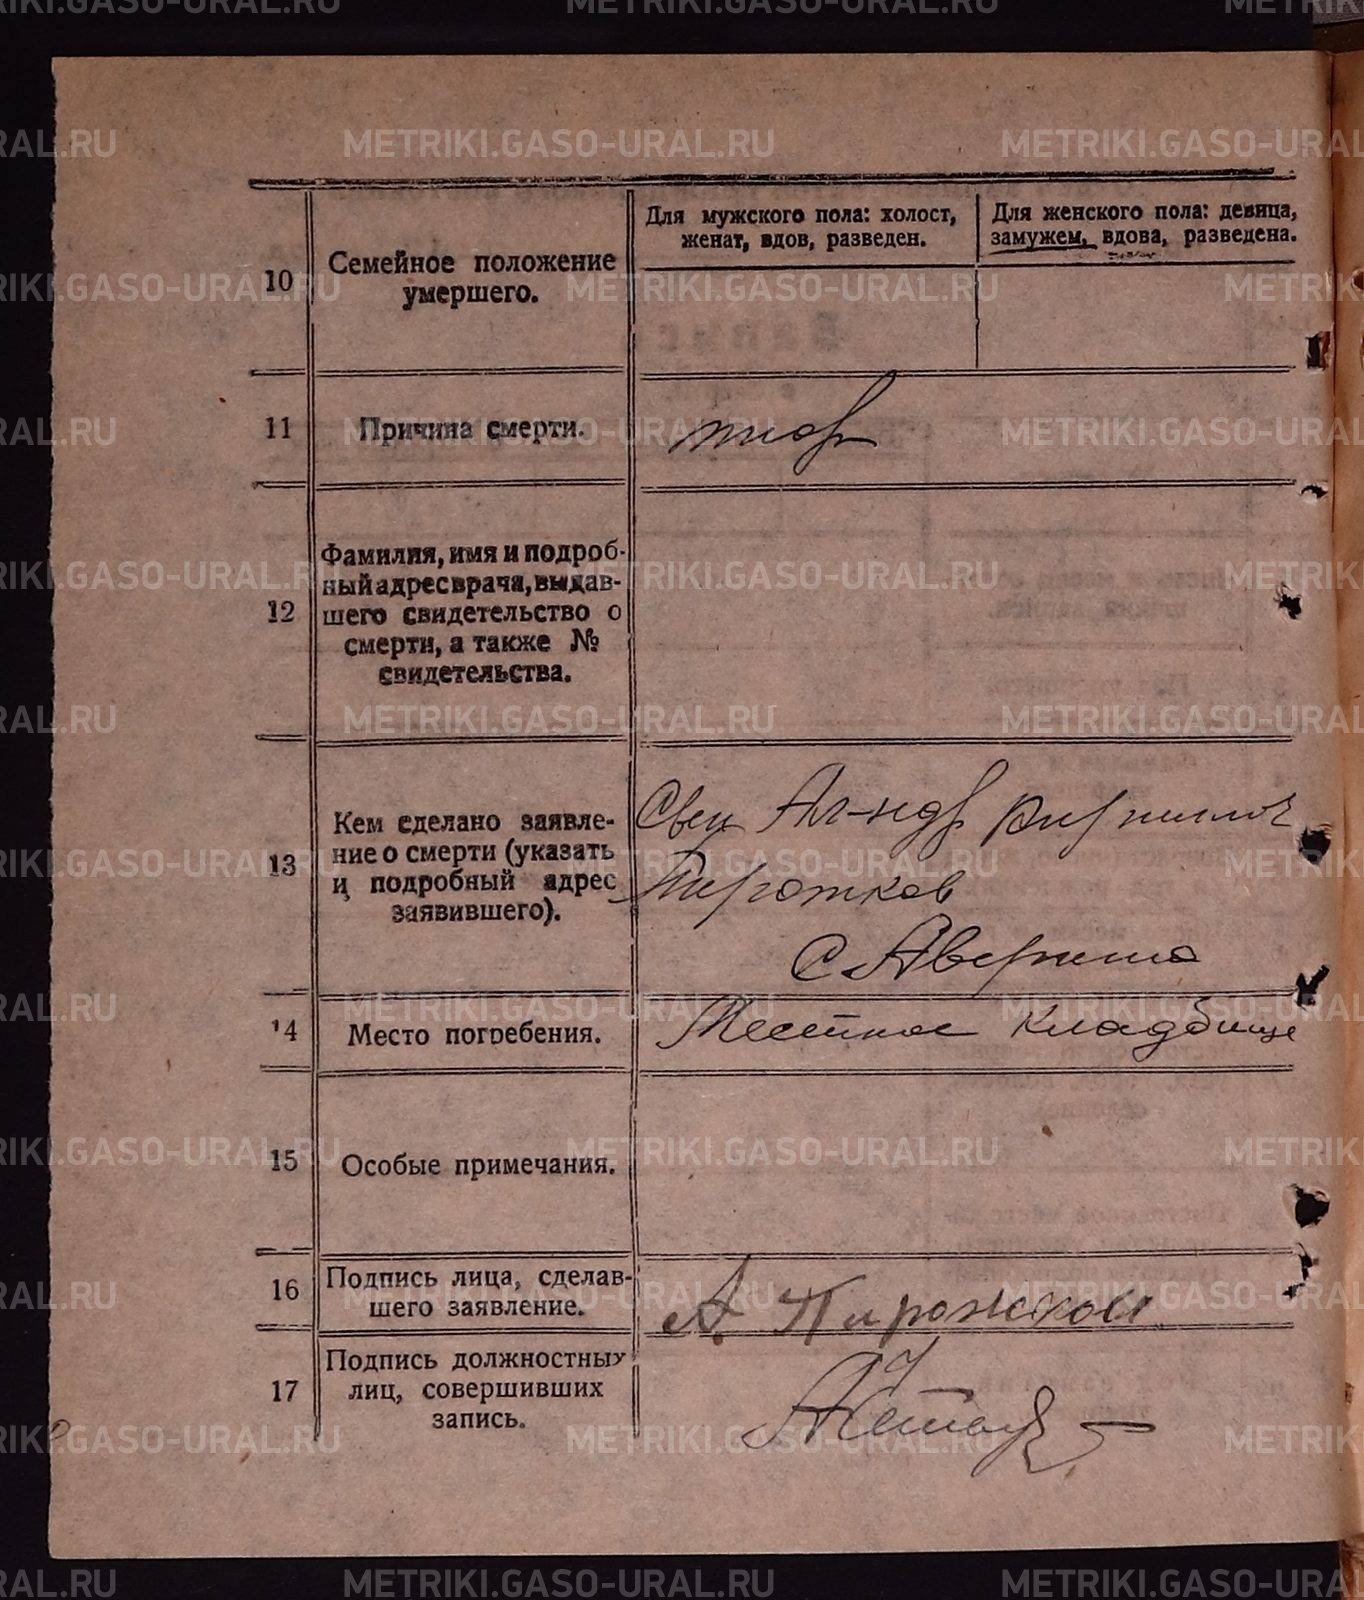 METRIKI.GASO-URAL.RU
Для мужского пола: холост,
женат, вдов, разведен.
Для женского пола: девица,
замужем, вдова, разведена.
10
Семейное положение
умершего.
11
Причина смерти.
тиф
12
Фамилия, имя и подроб-
ный адрес врача, выдав-
шего свидетельство о
смерти, а также №
свидетельства.
13
Кем сделано заявле-
ние о смерти (указать
и подробный адрес
заявившего).
Ал-ндр
Пирожков
С Аверино
14
Место погребения.
Местное кладбище
15
Особые примечания.
16
Подпись лица, сделав-
шего заявление.
А. Пирожков
17
Подпись должностных
лиц, совершивших
запись.